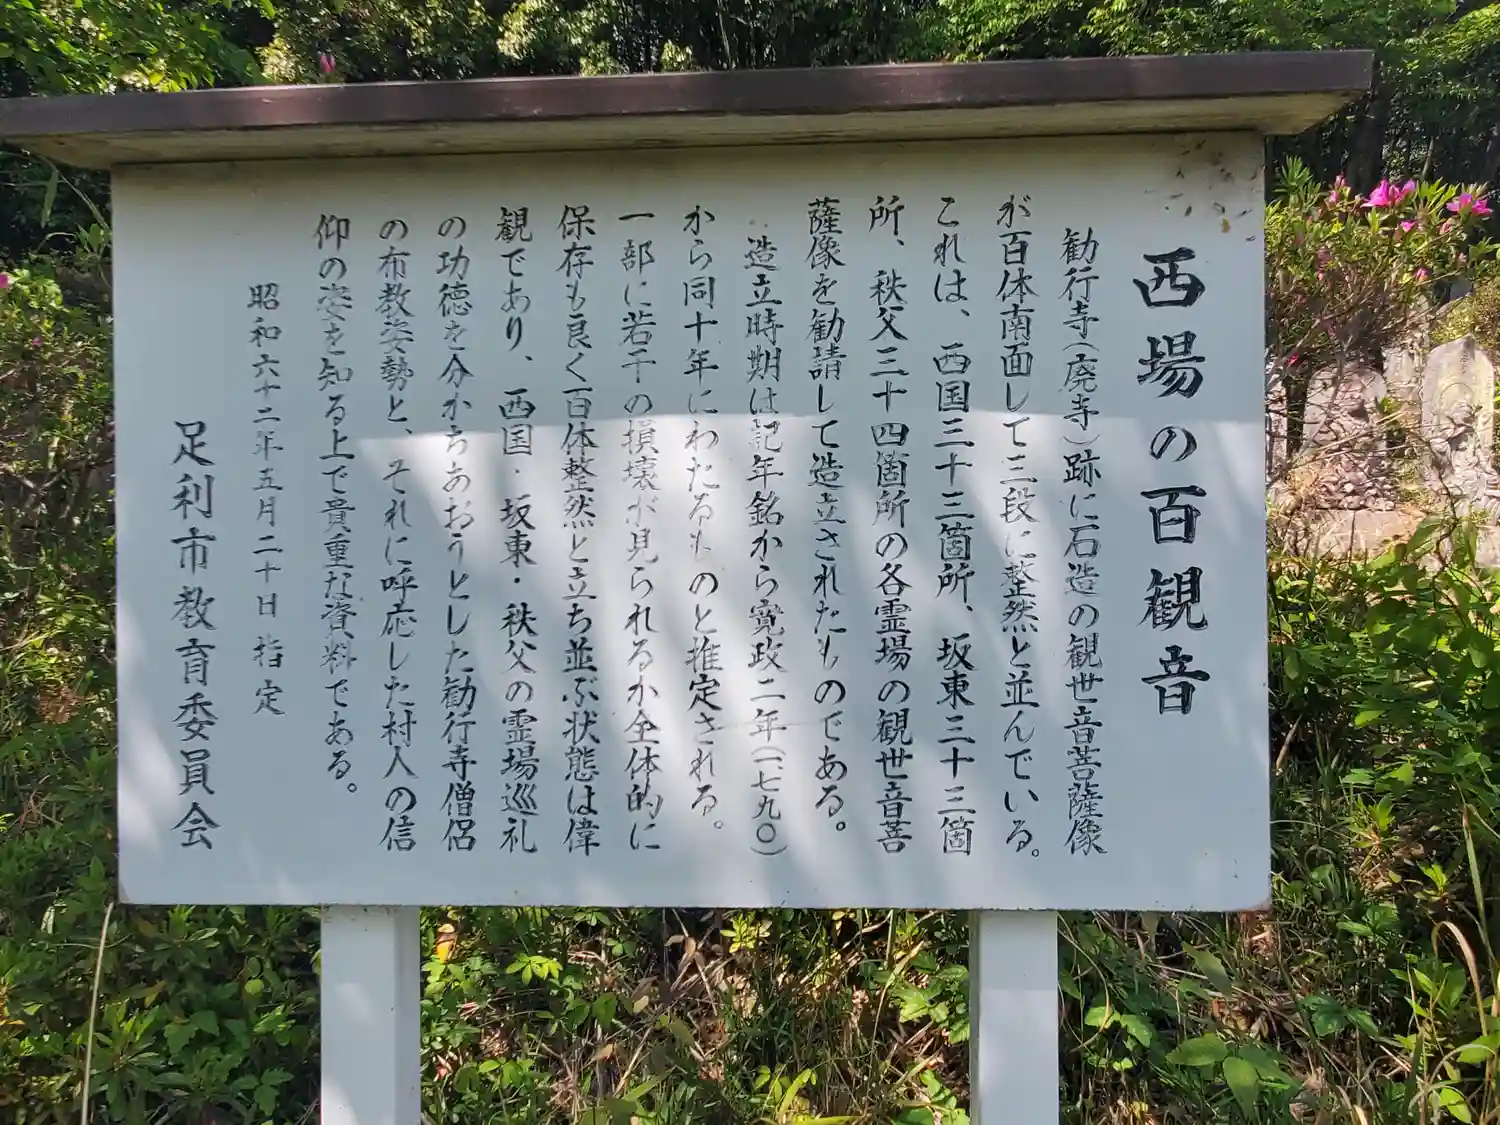 西場の百観音
勧行寺(廃寺)跡に石造の観世音菩薩像
が百体南面して三段に整然と並んでいる。
これは、西国三十三箇所、坂東三十三箇
所、秩父三十四箇所の各霊場の観世音菩
薩像を勧請して造立されたものである。
造立時期は記年銘から寛政二年(一七九〇)
から同十年にわたるものと推定される。
一部に若干の損壊が見られるが全体的に
保存も良く百体整然と立ち並ぶ状態は偉
観であり、西国・坂東・秩父の霊場巡礼
の功徳を分かちあおうとした勧行寺僧侶
の布教姿勢と、それに呼応した村人の信
仰の姿を知る上で貴重な資料である。
昭和六十二年五月二十日指定
足利市教育委員会